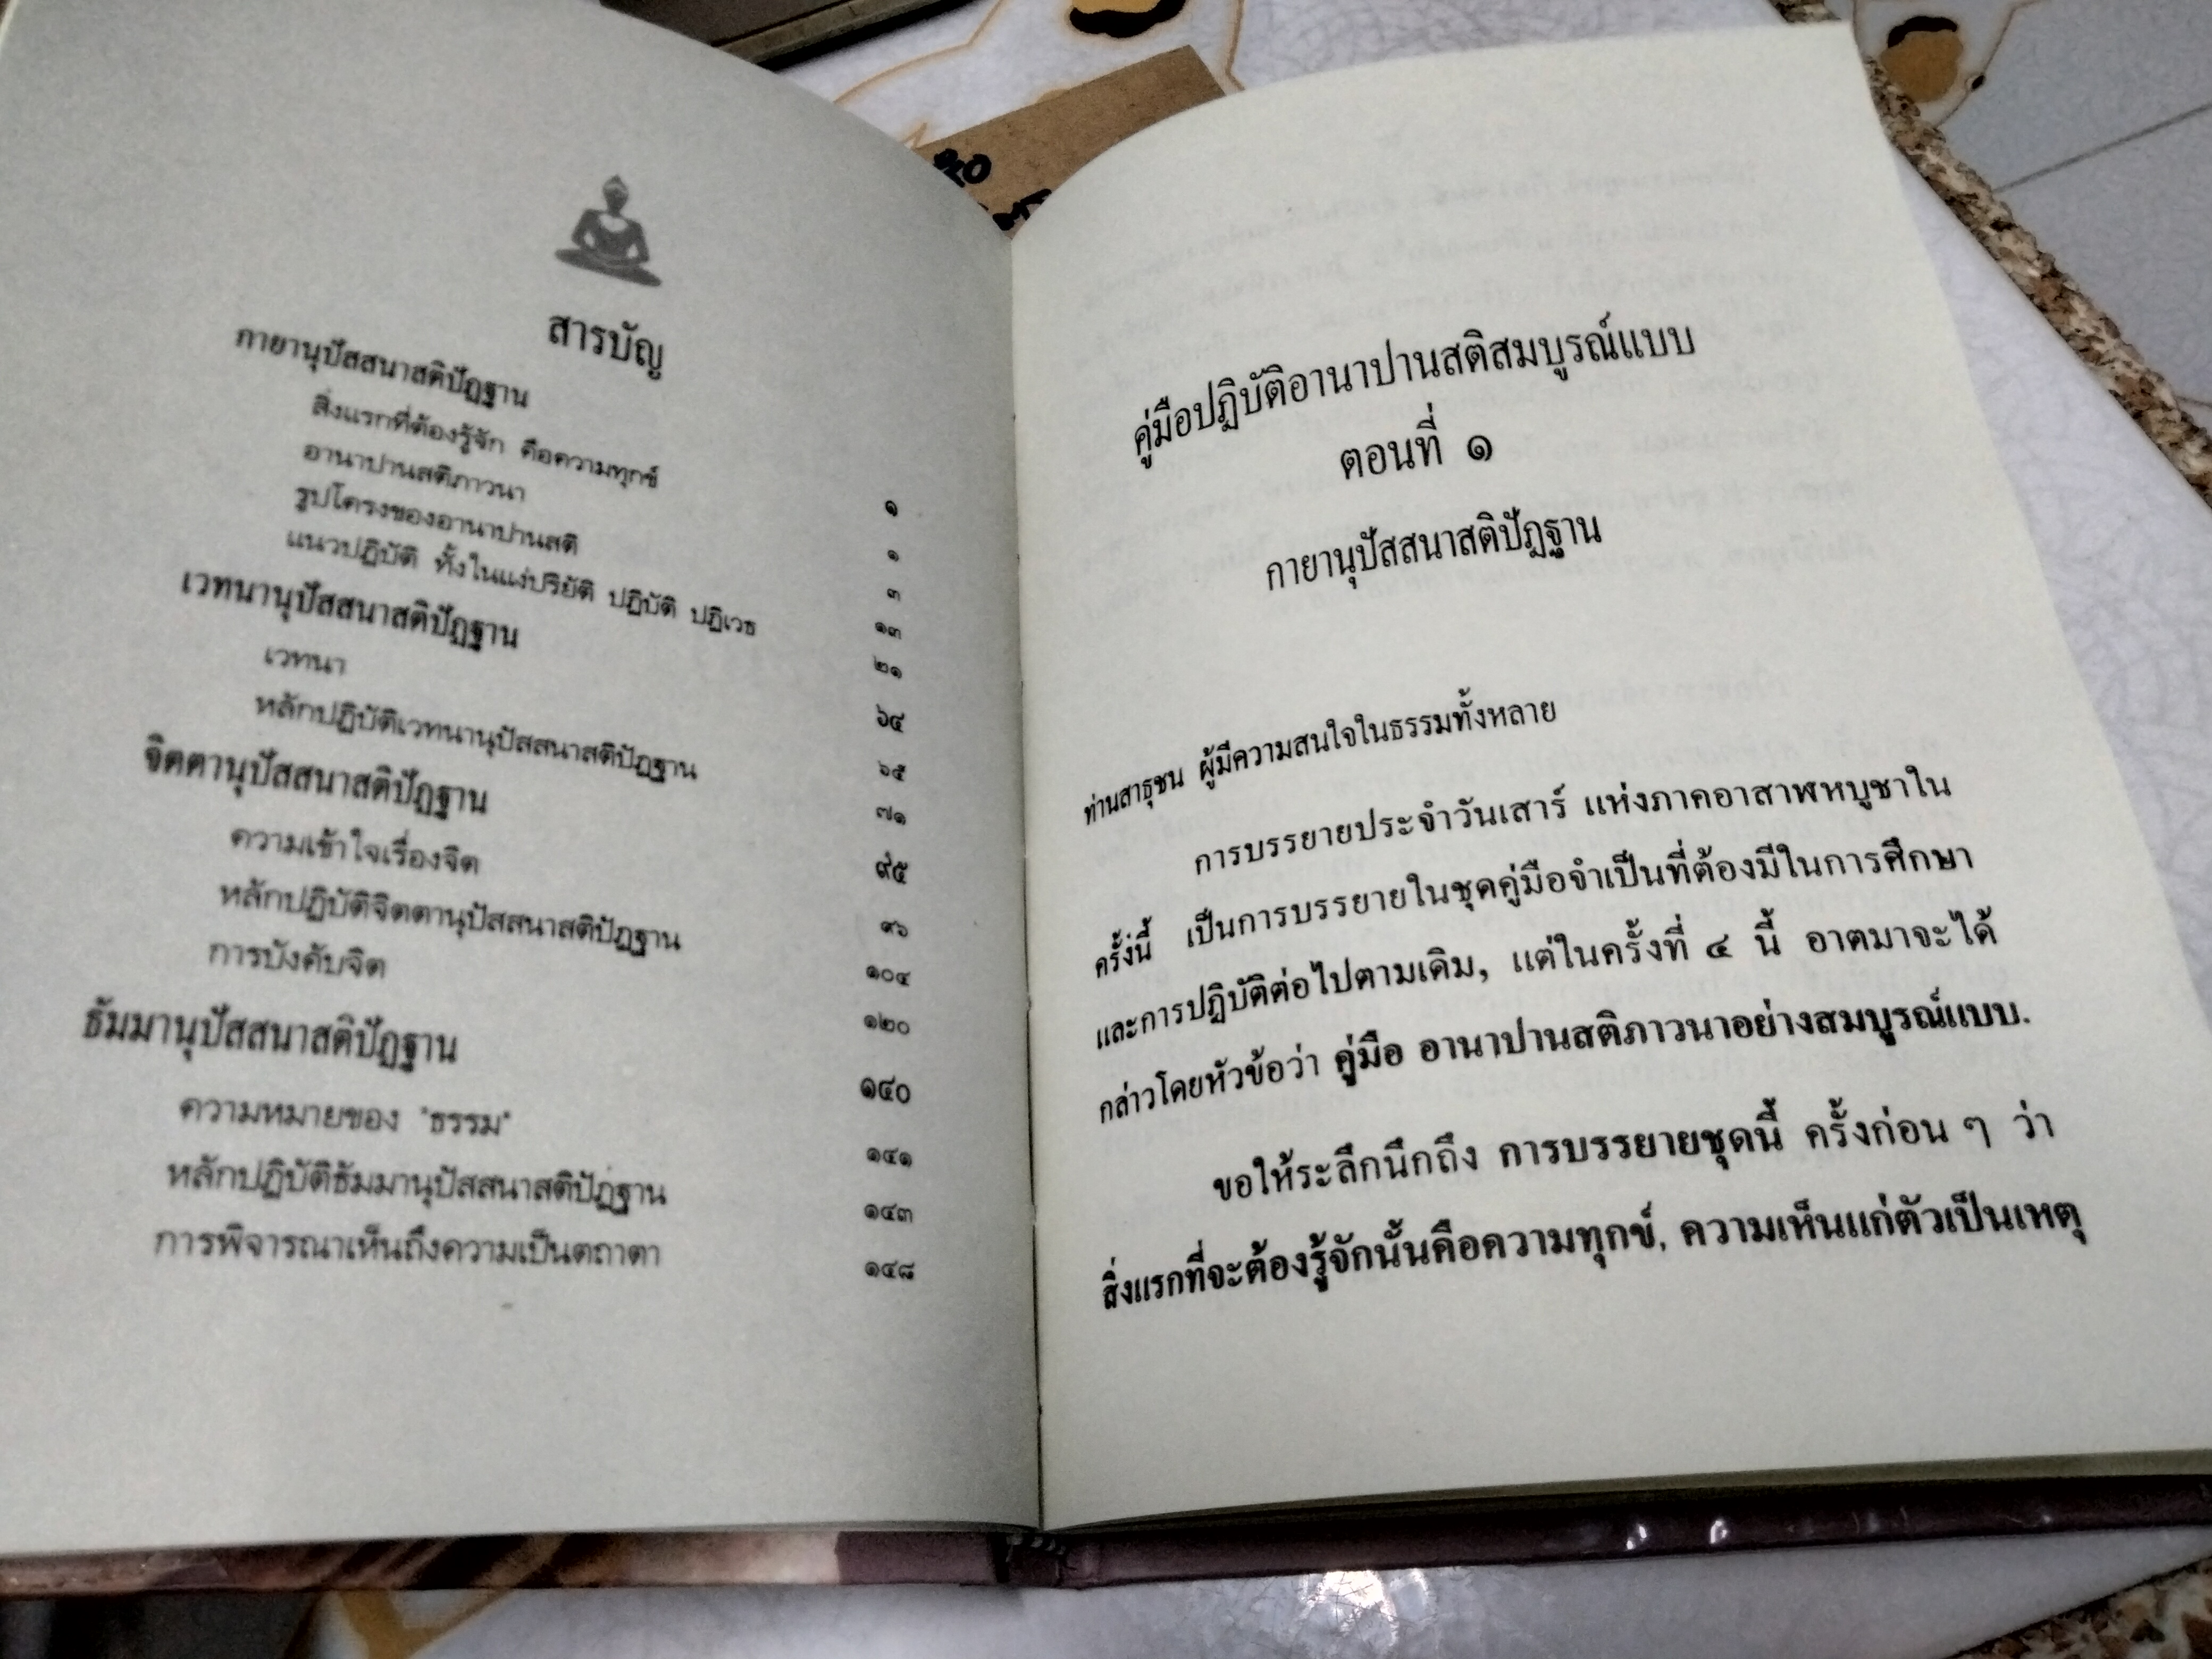 สารบัญ
กายานุปัสสนาสติปัฏฐาน ๑
สิ่งแรกที่ต้องรู้จัก คือความทุกข์ ๑
อานาปานสติภาวนา ๓
รูปโครงของอานาปานสติ ๑๓
แนวปฏิบัติ ทั้งในแง่ปริยัติ ปฏิบัติ ปฏิเวธ ๒๑
เวทนานุปัสสนาสติปัฏฐาน ๖๔
เวทนา ๖๕
หลักปฏิบัติเวทนานุปัสสนาสติปัฏฐาน ๗๑
จิตตานุปัสสนาสติปัฏฐาน ๙๕
ความเข้าใจเรื่องจิต ๙๖
หลักปฏิบัติจิตตานุปัสสนาสติปัฏฐาน ๑๐๔
การบังคับจิต ๑๒๐
ธัมมานุปัสสนาสติปัฏฐาน ๑๔๐
ความหมายของ "ธรรม" ๑๔๑
หลักปฏิบัติธัมมานุปัสสนาสติปัฏฐาน ๑๔๓
การพิจารณาเห็นถึงความเป็นตถาตา ๑๔๘
คู่มือปฏิบัติอานาปานสติสมบูรณ์แบบ
ตอนที่ ๑
กายานุปัสสนาสติปัฏฐาน
ท่านสาธุชน ผู้มีความสนใจในธรรมทั้งหลาย
การบรรยายประจำวันเสาร์ แห่งภาคอาสาฬหบูชาใน
ครั้งนี้ เป็นการบรรยายในชุดคู่มือจำเป็นที่ต้องมีในการศึกษา
และการปฏิบัติต่อไปตามเดิม, แต่ในครั้งที่ ๔ นี้ อาตมาจะได้
กล่าวโดยหัวข้อว่า คู่มือ อานาปานสติภาวนาอย่างสมบูรณ์แบบ.
ขอให้ระลึกนึกถึง การบรรยายชุดนี้ ครั้งก่อน ๆ ว่า
สิ่งแรกที่จะต้องรู้จักนั้นคือความทุกข์, ความเห็นแก่ตัวเป็นเหตุ